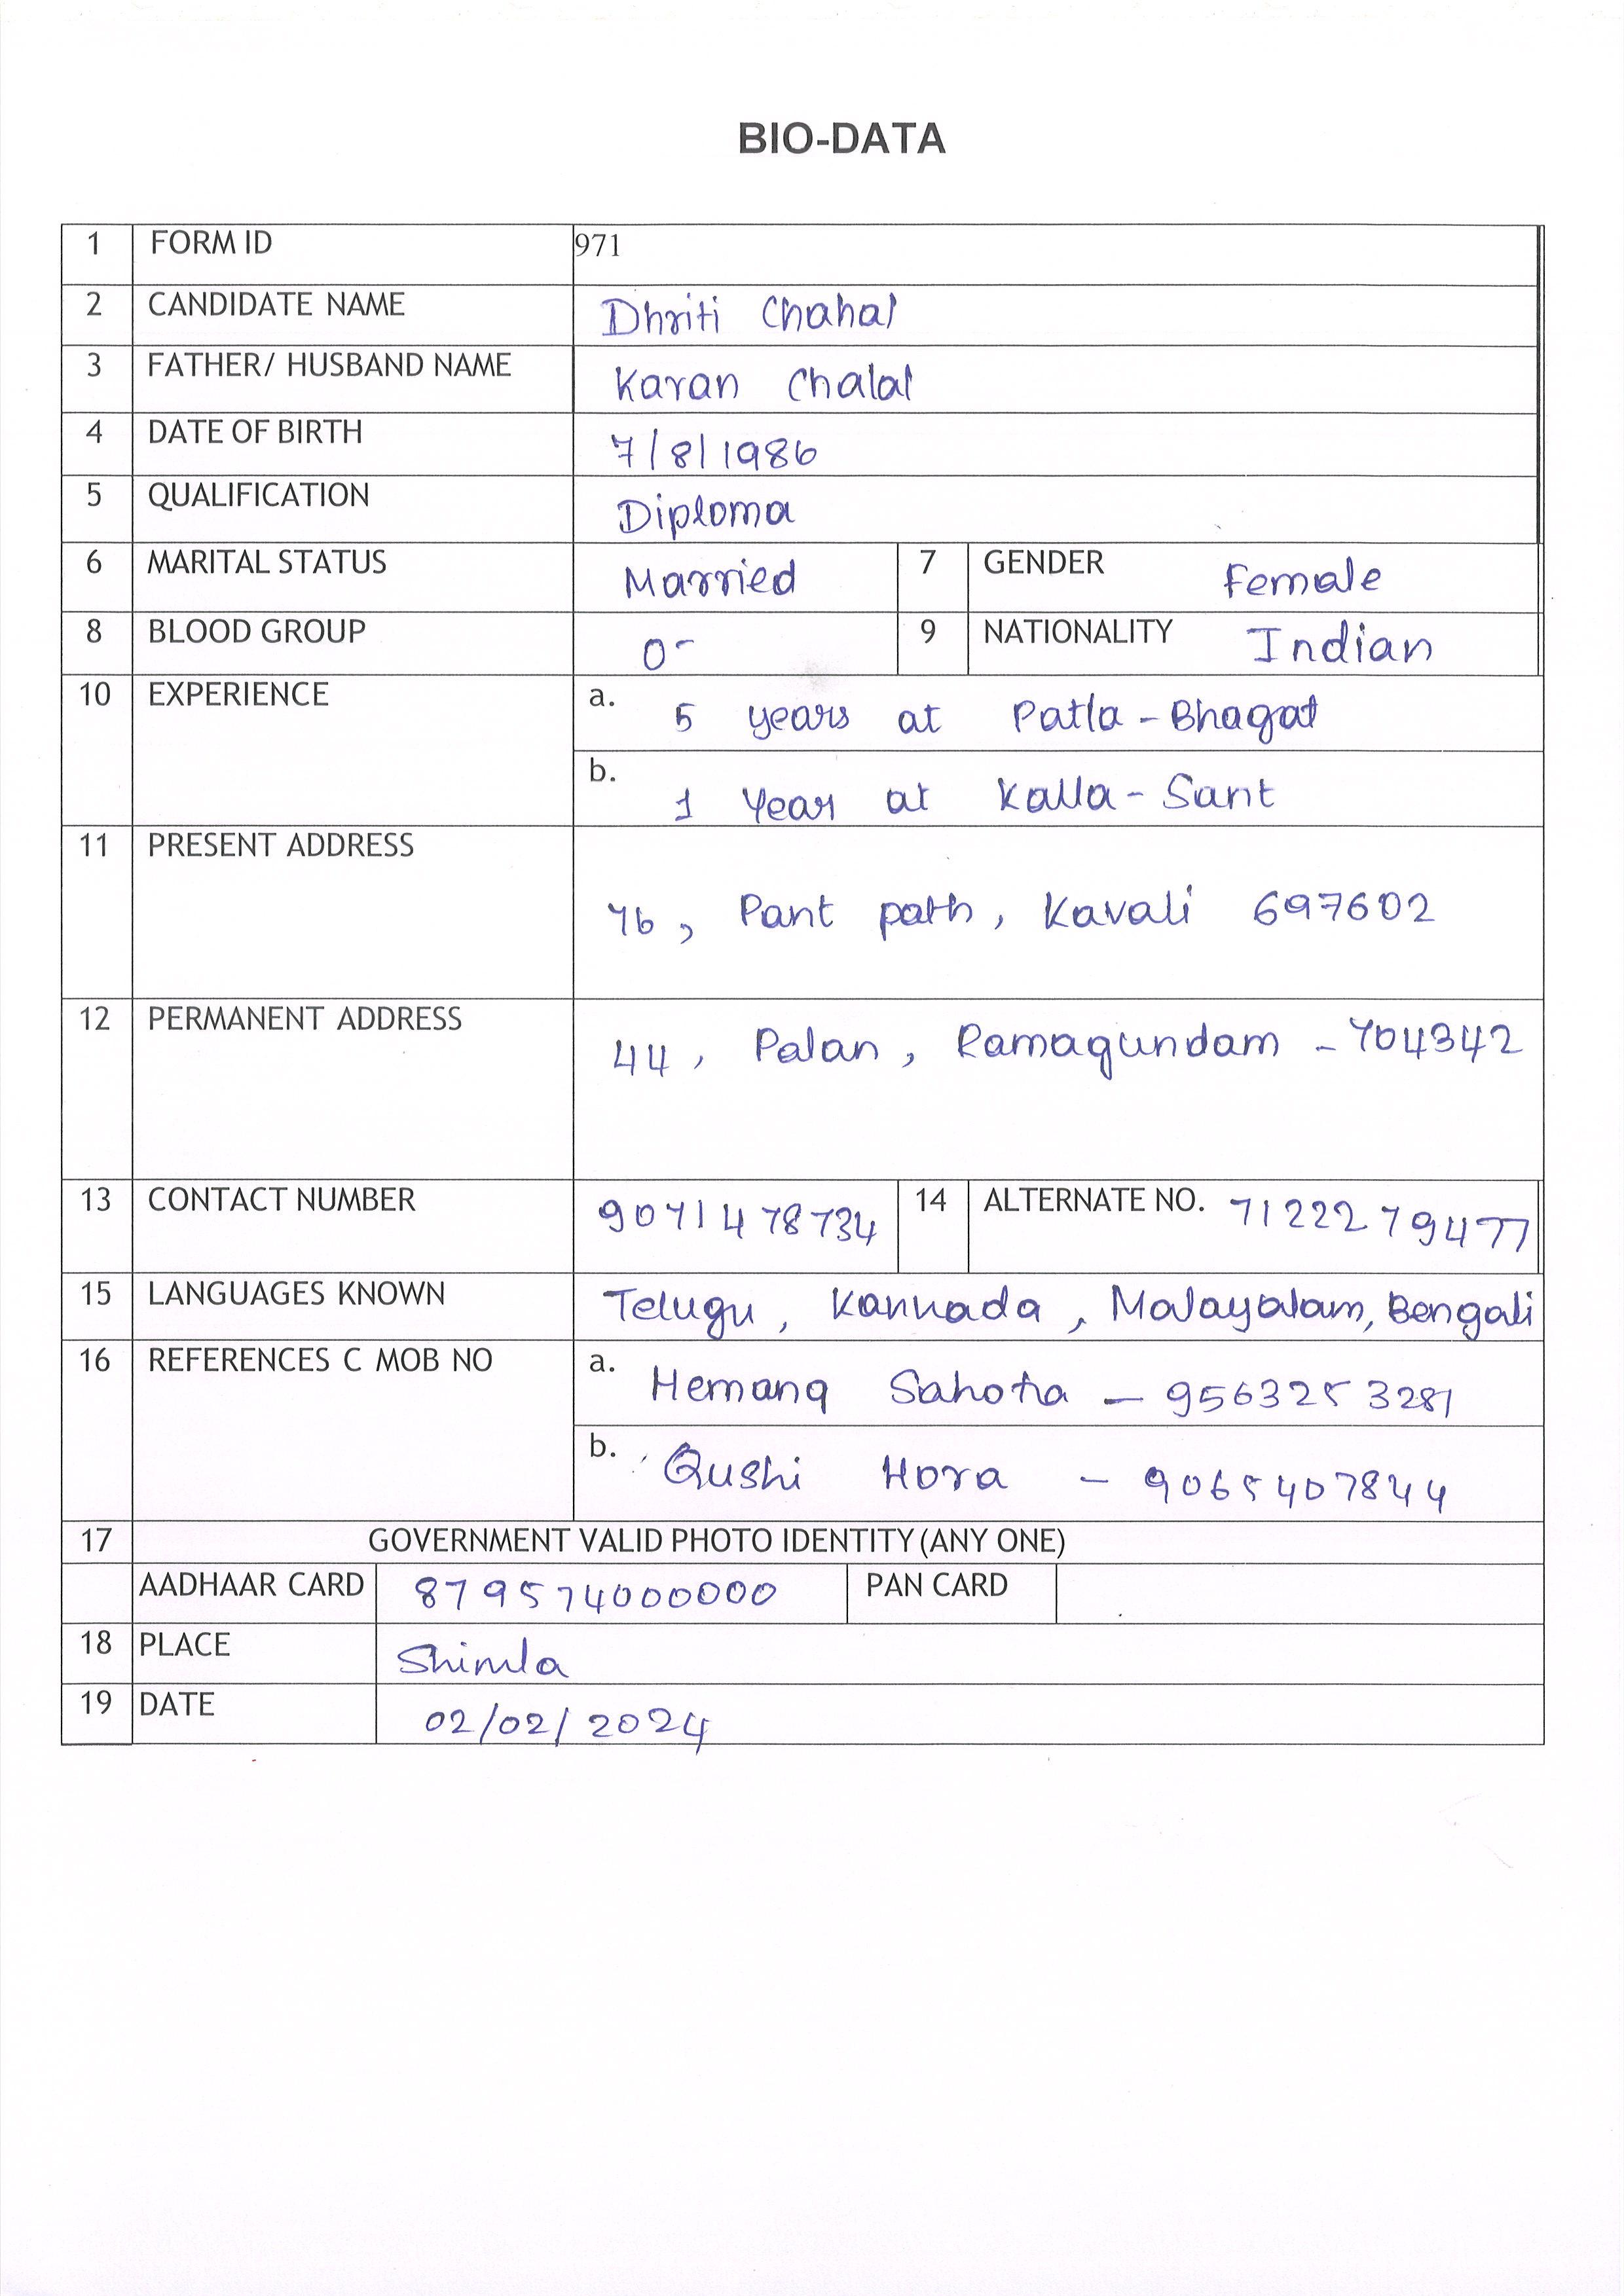 BIO-DATA
1 FORM ID 971
2 CANDIDATE NAME Dhriti Chahal
3 FATHER/ HUSBAND NAME Karan Chalal
4 DATE OF BIRTH 7/8/1986
5 QUALIFICATION Diploma
6 MARITAL STATUS Married 7 GENDER Female
8 BLOOD GROUP O- 9 NATIONALITY Indian
10 EXPERIENCE a. 5 years at Patla-Bhagat
b. 1 Year at Kalla-Sant
11 PRESENT ADDRESS
76, Pant path, Kavali 697602
12 PERMANENT ADDRESS
44, Palan, Ramagundam - 704342
13 CONTACT NUMBER 9071478734 14 ALTERNATE NO. 7122279477
15 LANGUAGES KNOWN Telugu, Kannada, Malayalam, Bengali
16 REFERENCES C MOB NO a. Hemang Sahota - 9563253281
b. Qushi Hora - 9065407844
17 GOVERNMENT VALID PHOTO IDENTITY (ANY ONE)
AADHAAR CARD 879574000000 PAN CARD
18 PLACE Shimla
19 DATE 02/02/2024